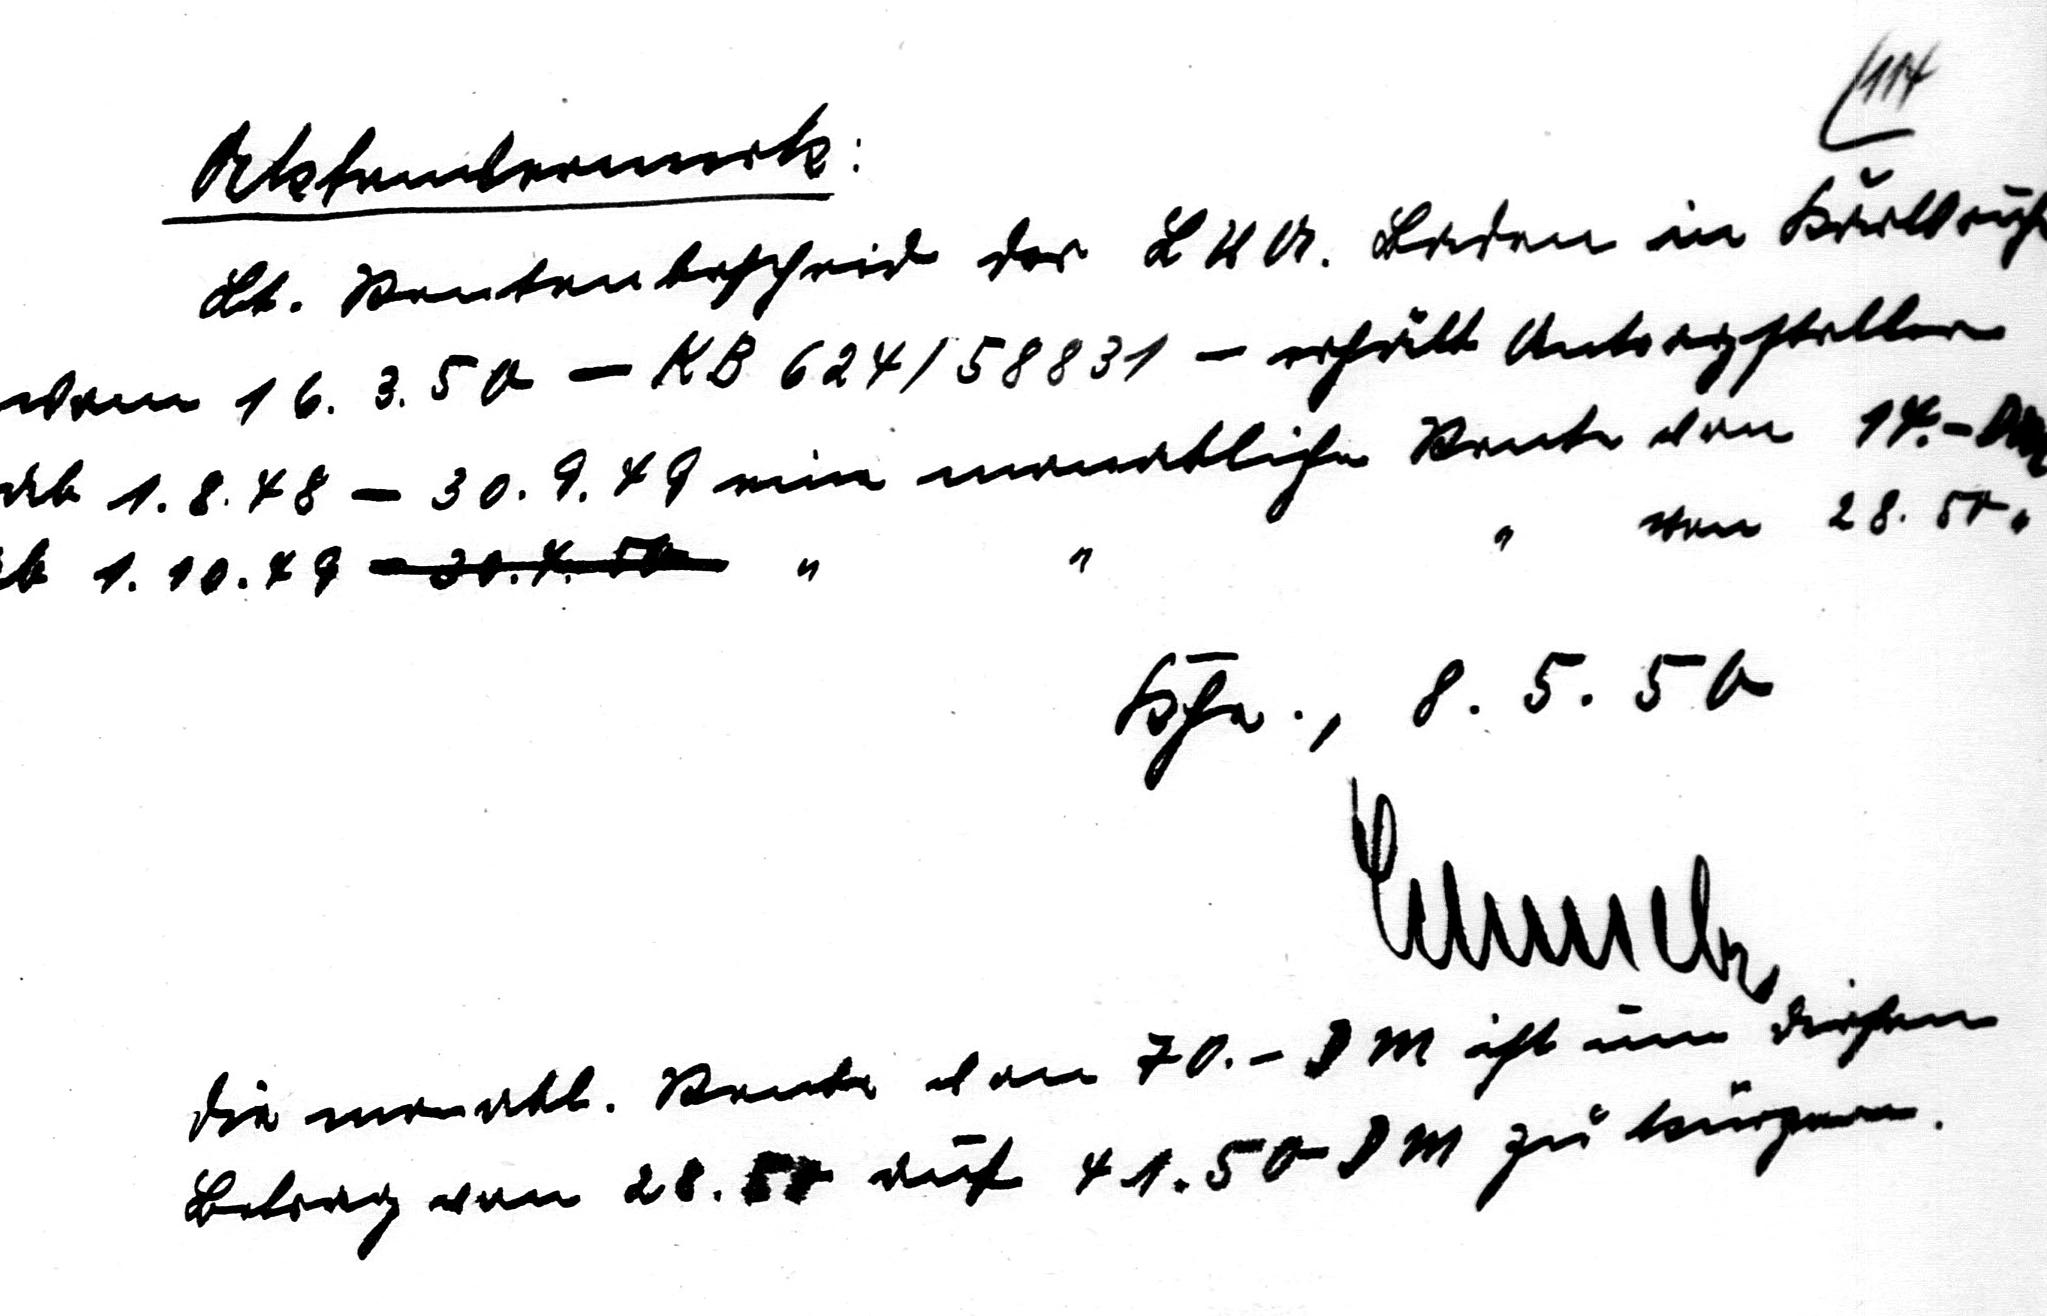 114
Aktenvermerk:
Lt. Rentenbescheid der LVA. Baden in Karlsruhe
vom 16.3.50 — KB 624/58831 — erhält Antragsteller
ab 1.8.48 — 30.9.49 eine monatliche Rente von 14.- DM
ab 1.10.49 — 30.4.50 " " " von 28.50 "
Khe., 8.5.50
Die monatl. Rente von 70.- DM ist um diesen
Betrag von 28.50 auf 41.50 DM zu kürzen.